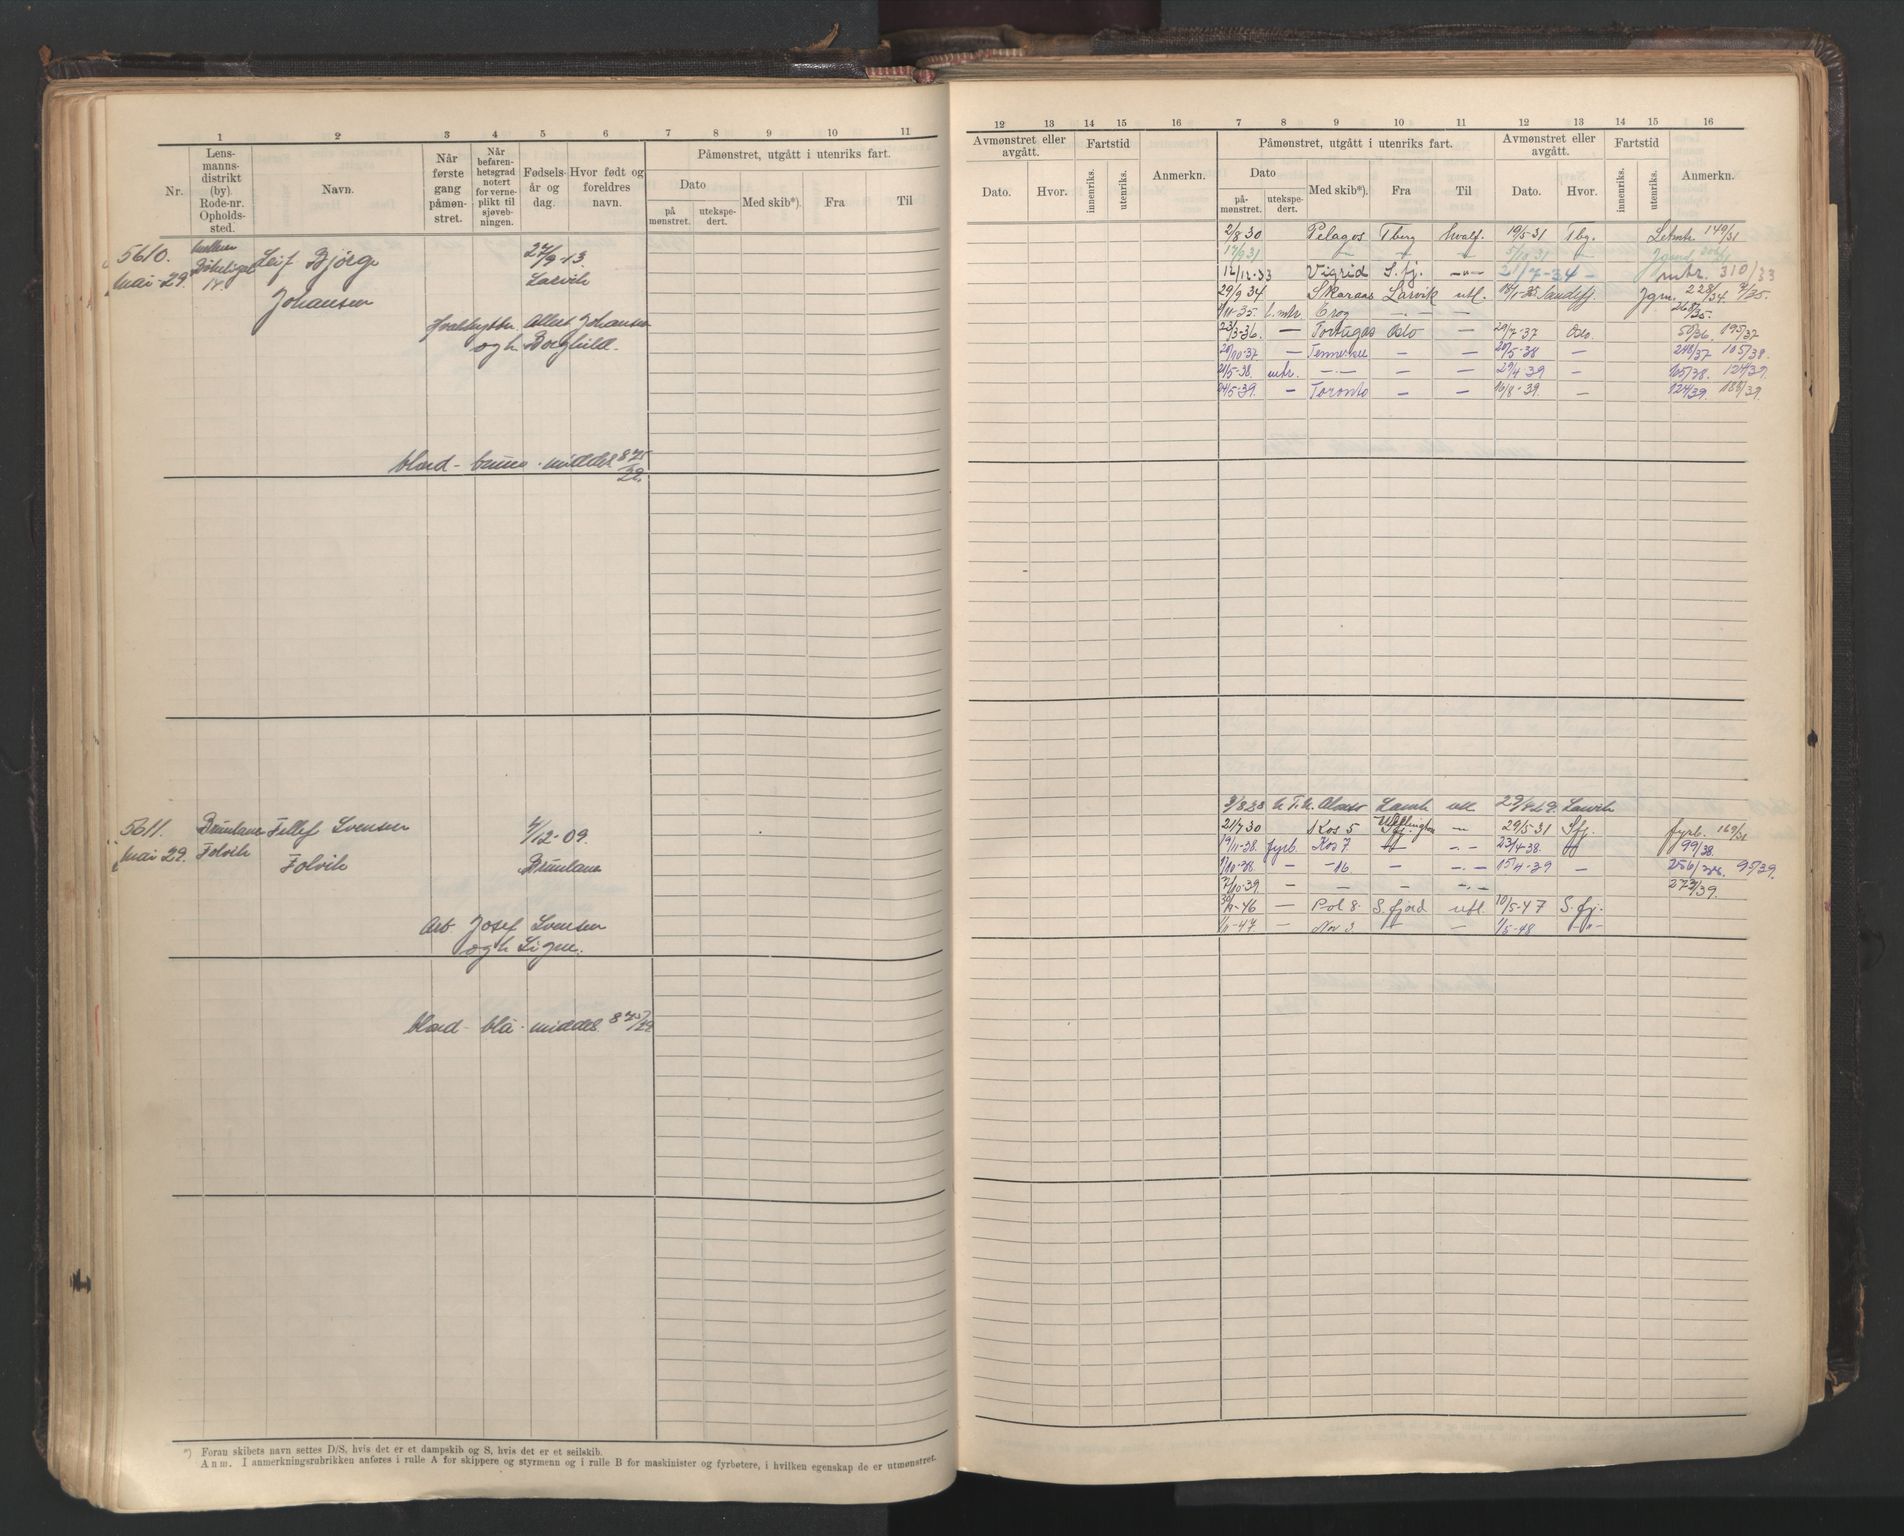 1 2 3 4 5 6 7 8 9 10 11
Nr.
Lens-
manns-
distrikt
(by).
Rode-nr.
Opholds-
sted.
Navn.
Når
første
gang
påmøn-
stret.
Når
befaren-
hetsgrad
notert
for verne-
plikt til
sjøveb-
ningen.
Fødsels-
år og
dag.
Hvor født og
foreldres
navn.
Påmønstret, utgått i utenriks fart.
Dato
på
mønstret.
utekspe-
dert.
Med skib*).
Fra
Til
5610.
Mai-29.
14.
Leif Bjørge
Johansen
27/9-13.
Larvik
Albert Johansen
og h. Borghild.
blond - brune - middel 875/29.
5611.
Mai 29.
Brunlanes
Folvik
Fellef Svensen
Folvik
4/12-09.
Brunlanes
Arb. Josef Svensen
og h. Signe.
blond - blå - middel. 875/29
*) Foran skibets navn settes D/S, hvis det er et dampskib og S, hvis det er et seilskib.
Anm. I anmerkningsrubrikken anføres i rulle A for skippere og styrmenn og i rulle B for maskinister og fyrbøtere, i hvilken egenskap de er utmønstret.
12 13 14 15 16 7 8 9 10 11 12 13 14 15 16
Avmønstret eller
avgått.
Fartstid
Dato.
Hvor.
innenriks.
utenriks.
Anmerkn.
Påmønstret, utgått i utenriks fart.
Dato
på-
mønstret.
utekspe-
dert.
Med skib*).
Fra
Til
Avmønstret eller
avgått.
Dato.
Hvor.
Fartstid
innenriks.
utenriks.
Anmerkn.
2/8 30 Pelagos Tberg hvalf. 19/5-31 Tbg. 149/31
17/9 31 - - - 5/10 31 -
12/12-33 Vigrid S.fj. -"- 21/7-34 - mtr. 310/33
29/9 34 Skaraas Larvik utl. 18/1-35 Sandefj. Jgm. 228/34 4/35.
1/11-35. l.mtr. Crog - - - 268/35.
23/3-36. - Tortugas Oslo - 29/7-37 Oslo. 50/36. 195/37
20/10-37 - Tennessee - - 20/5-38 - 248/37 105/38.
21/5-38. mtr. - - - 29/4-39 - 105/38. 124/39.
24/5-39. - Toronto - - 16/8-39. - 124/39. 188/39.
3/8 28 Alonso Larvik utl 29/4 29. Larvik
21/7 30 Kos 5 Sfj. Wellington - 29/5-31 Sfj. fyrb. 169/31
19/11-38. fyrb. Kos 7 - -.- 23/4-38. - 99/38.
17/10-38. - -16 -.- 15/4-39 - 256/38. 95/39.
7/10-39. - - - -.- 273/39.
30/9-46 - Pol 8. S.fjord utl. 10/5-47 S.fj.
1/11-47 - Nov 3 - - 1/5-48 -"-